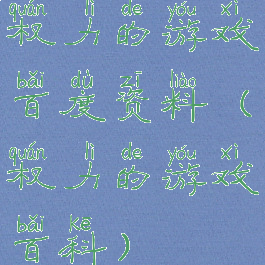 quán lì de yóu xì
权力的游戏
bǎi dù zī liào
百度资料（
quán lì de yóu xì
权力的游戏
bǎi kē
百科）